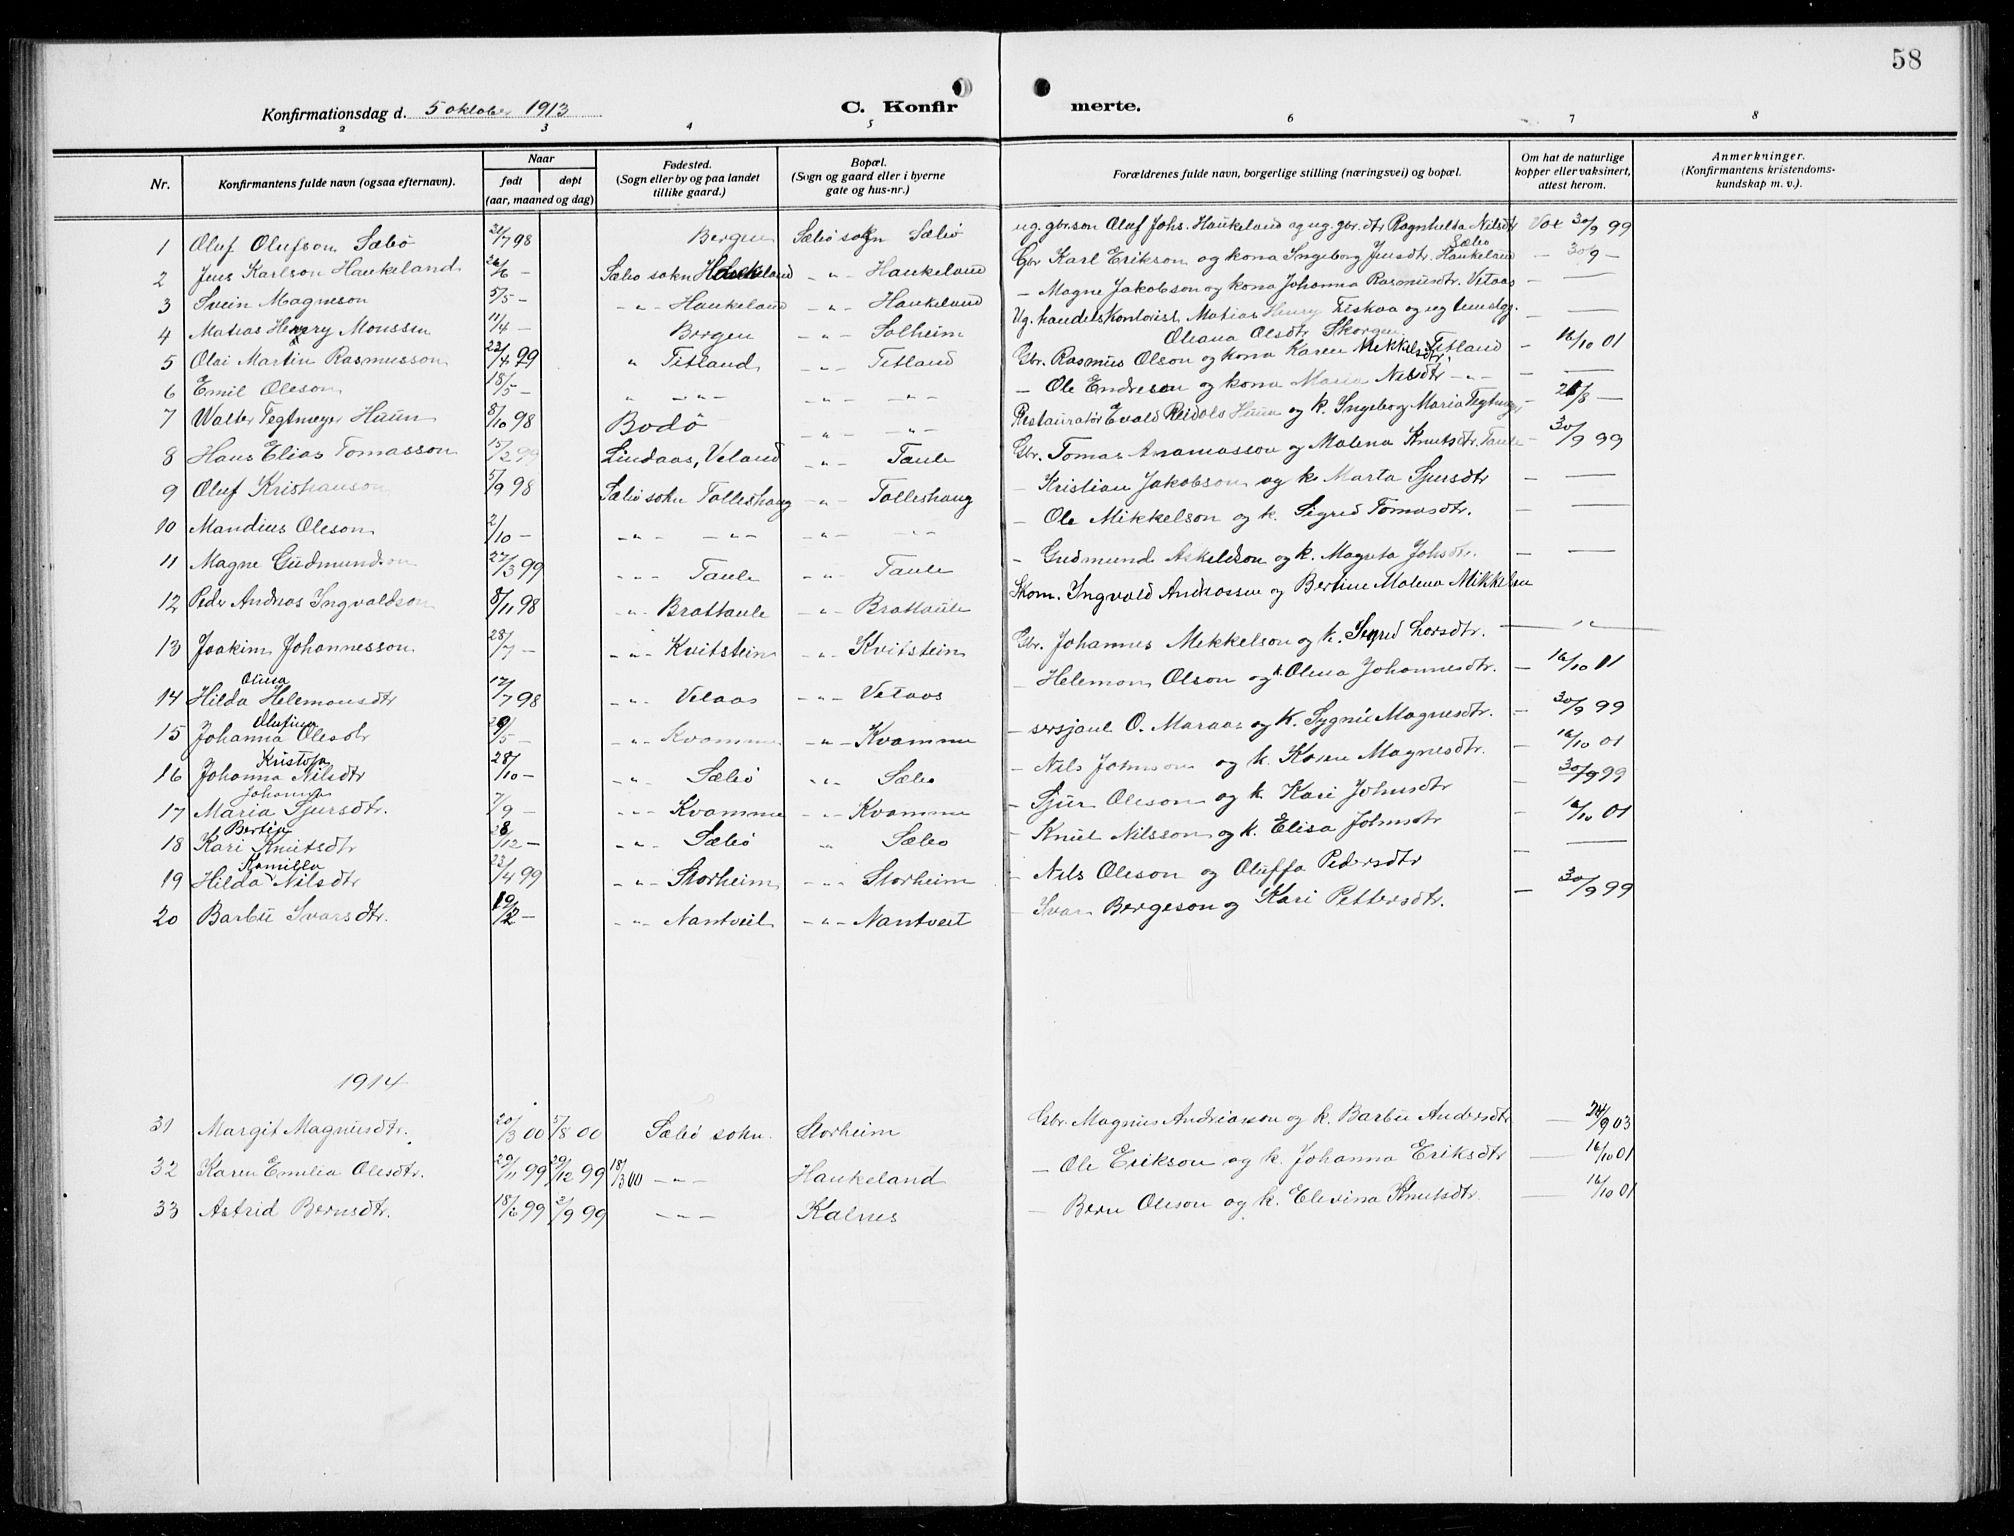 58
Konfirmationsdag d. 5 oktober 1913 C. Konfirmerte.
2 3 4 5 6 7 8
Nr. Konfirmantens fulde navn (ogsaa efternavn). Naar født døpt (aar, maaned og dag) Fødested. (Sogn eller by og paa landet tillike gaard.) Bopæl. (Sogn og gaard eller i byerne gate og hus-nr.) Forældrenes fulde navn, borgerlige stilling (næringsvei) og bopæl. Om hat de naturlige kopper eller vaksinert, attest herom. Anmerkninger. (Konfirmantens kristendoms-kundskap m. v.).
1 Oluf Olufson Sæbø 21/7 98 Bergen Sæbø sokn Sæbø ug. gbr.son Oluf Johs. Haukeland og ug. gbr. dtr Ragnhilda Nilsdtr Sæbø Vax 30/9 99
2 Jens Karlson Haukeland 26/6 — Sæbø sokn Haukeland -"- Haukeland Gbr Karl Erikson og kona Ingeborg Jensdtr. Haukeland — 30/9 —
3 Svein Magneson 5/5 — -"- Haukeland -"- Haukeland — Magne Jakobson og kona Johanna Rasmusdtr. Vetaas — —
4 Matias Henry Monssen 11/4 — Bergen -"- Solheim Ug. handelskontorist Matias Henry Fiskaa og ug Oleana Olsdtr — —
5 Olai Martin Rasmusson 22/4 99 " Titland -"- Titland Gbr. Rasmus Olson og kona Karen Mikkelsdtr. Titland — 16/10 01
6 Emil Oleson 18/5 — " -"- -"- -"- -"- — Ole Endreson og kona Maria Nilsdtr -"- — —
7 Walter Tegtmeyer Huun 8/10 98 Bodø -"- -"- Restauratør Evald Reidols Huun og k. Ingeborg Maria Tegtmeyer — 28/8 —
8 Hans Elias Tomasson 15/2 99 Lindaas, Veland -"- Taule Gbr. Tomas og Malena Knutsdtr. Taule — 30/9 99
9 Oluf Kristianson 5/9 98 Sæbø sokn Tolleshaug -"- Tolleshaug — Kristian Jakobson og k. Marta Sjursdtr — —
10 Mandius Oleson 2/10 — -"- -"- -"- -"- — Ole Mikkelson og k. Sigrid Tomasdtr. — —
11 Magne Gudmundson 27/3 99 -"- Taule -"- Taule — Gudmund Askeldson og k. Magreta Johsdtr. — —
12 Peder Andreas Ingvaldson 8/11 98 -"- Brattaule -"- Brattaule Skom. Ingvald Andreassen og Bertine Malena Mikkelsen
13 Joakim Johannesson 28/7 — -"- Kvitstein -"- Kvitstein Gbr. Johannes Mikkelson og k. Sigrid Larsdtr. — " —
14 Hilda Olena Helemonsdtr 17/7 98 -"- Vetaas -"- Vetaas — Helemon Olson og k. Olena Johannesdtr. — 16/10 11
15 Johanna Olufina Olesdtr 29/5 — -"- Kvamme -"- Kvamme — O. Maraas og k. Sygni Magnesdtr. — 30/9 99
16 Johanna Kristofa Nilsdtr 28/10 — -"- Sæbø -"- Sæbø — Nils Johnson og k. Karen Magnesdtr. — 16/10 01
17 Maria Johanna Sjursdtr. 7/9 — -"- Kvamme -"- Kvamme — Sjur Oleson og k. Kari Johnsdtr — 30/9 99
18 Kari Bertin Knutsdtr 28/12 — -"- Sæbø " Sæbø — Knut Nilsson og k. Elisa Johnsdtr — 16/10 01
19 Hilda Kamilla Nilsdtr 23/4 99 -"- Storheim -"- Storheim — Nils Oleson og Oluffa Pedersdtr — —
20 Barbu Ivarsdtr. 19/12 — -"- Nantveit -"- Nantveit — Ivar Bergeson og Kari Pettersdtr. — 30/9 99
1914
31 Margit Magnusdtr. 20/3 00 5/8 00 Sæbø sokn. Storheim Gbr. Magnus Andriasson og k. Barbu Andersdtr — 24/9 03
32 Karen Emilia Olesdtr. 29/11 99 29/12 99 18/3 00 -"- Haukeland — Ole Erikson og k. Johanna Eriksdtr — 16/10 01
33 Astrid Bernsdtr. 18/6 99 3/9 99 — — — Kalnes — Bern Oleson og k. Elevina Knutsdtr. — 16/10 01